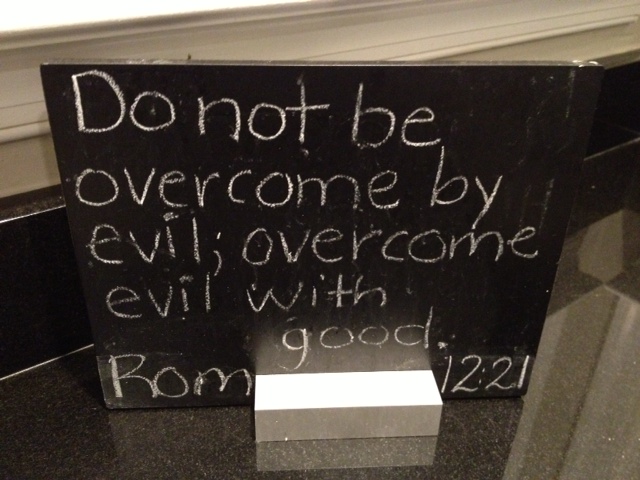 Do not be
overcome by
evil; overcome
evil with
good.
Rom 12:21